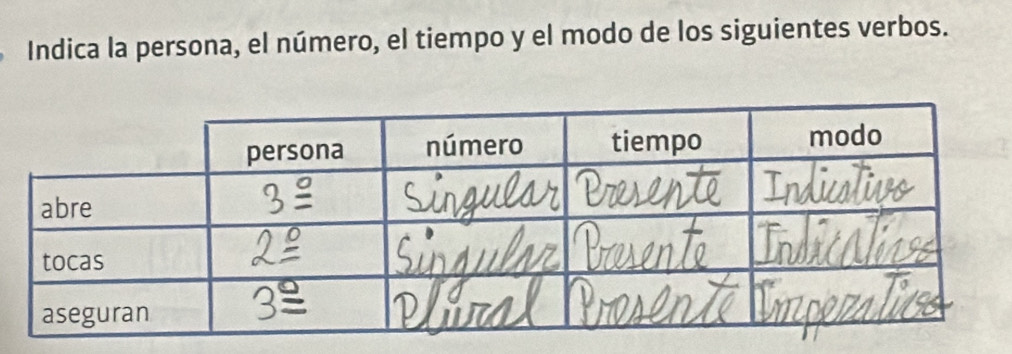 Indica la persona, el número, el tiempo y el modo de los siguientes verbos.
persona número tiempo modo
abre 3º Singular Presente Indicativo
tocas 2º Singular Presente Indicativo
aseguran 3º Plural Presente Imperativo